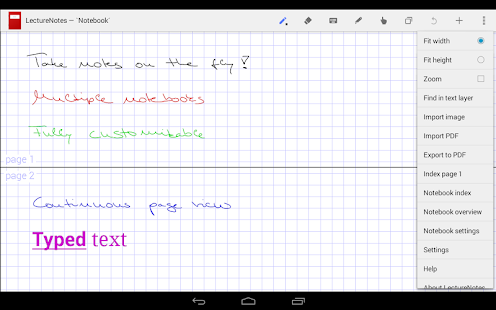 LectureNotes — `Notebook´
Take notes on the fly!
Multiple notebooks
Fully customizable
page 1
page 2
Continuous page view
Typed text
Fit width
Fit height
Zoom
Find in text layer
Import image
Import PDF
Export to PDF
Index page 1
Notebook index
Notebook overview
Notebook settings
Settings
Help
About LectureNotes